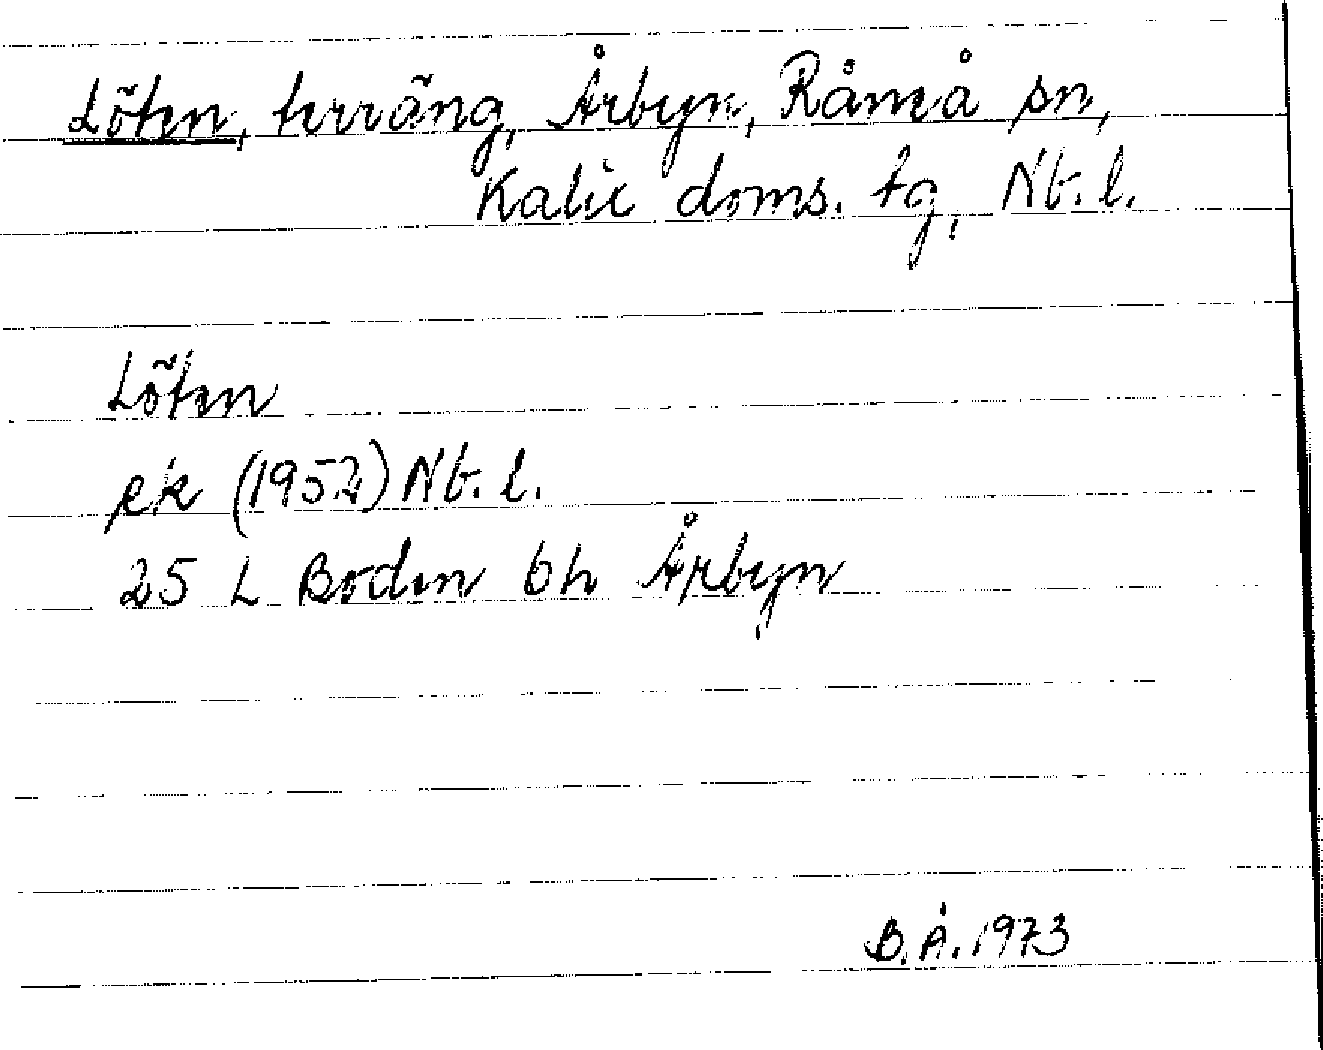 Löten, terräng, Årbyn, Råneå sn,
Kalix doms. tg, Nb. l.
Löten
ek (1952) Nb. l.
25 L Boden 6h Årbyn
B.Å. 1973